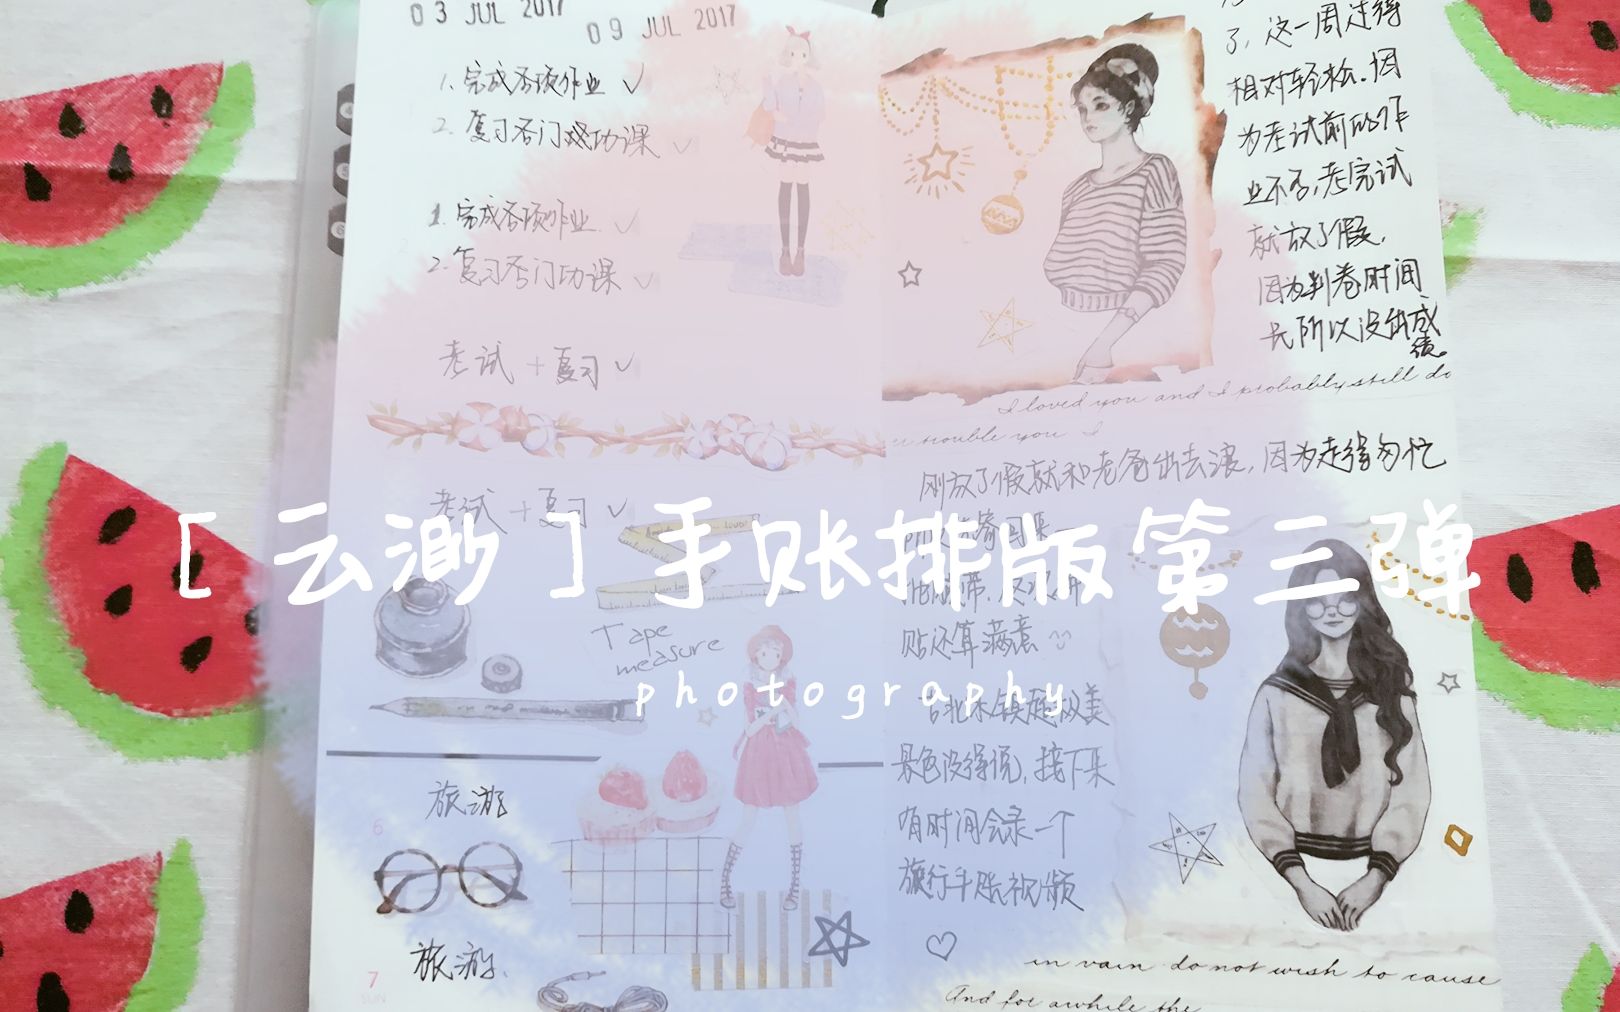 03 JUL 2017
09 JUL 2017
1.完成各项作业 ✓
2.复习各门功课 ✓
1.完成各项作业 ✓
2.复习各门功课 ✓
考试+复习 ✓
考试+复习 ✓
Tape
measure
6
旅游
7
SUN
旅游.
了，这一周过得
相对轻松.因
为考试前的作
业不多,考完试
就放了假,
因为判卷时间
长所以没出成
绩。
I loved you and I probably still do
trouble you I
刚放了假就和老爸出去浪,因为走得匆忙
贴还算满意
古北水镇超级美
景色没得说,接下来
有时间会录一个
旅行手账视频
in vain do not wish to cause
And for awhile the
[云渺]手账排版第三弹
photography